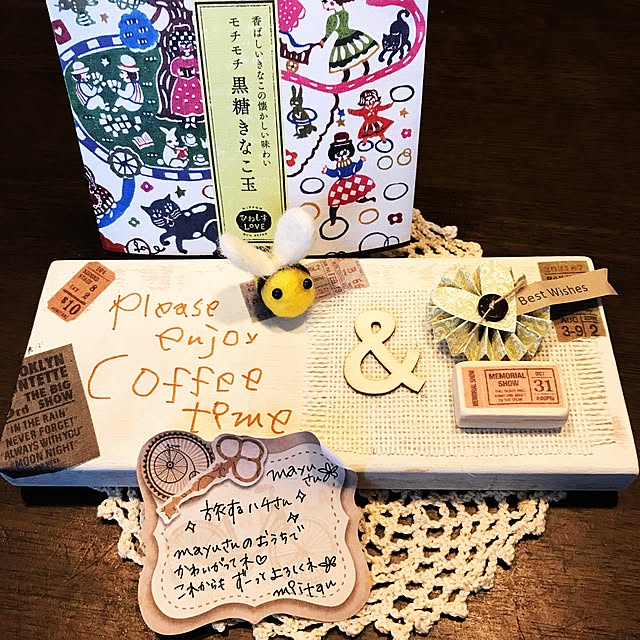 香ばしいきなこの懐かしい味わい
モチモチ 黒糖きなこ玉
NISSIN
ひねもす
LOVE
Please
enjoy
Coffee
time
&
Best Wishes
$10
OKLYN
NTETTE
THE BIG
SHOW
IN THE RAIN
NEVER FORGET
ALWAYS WITH YOU
MOON NIGHT
MEMORIAL SHOW
MEMORIAL
SHOW
OCT
31
AUG
3-9
2
mayu
さん
旅するハチさん
mayuさんのおうちで
かわいがってネ♡
これからもずーっとよろしくネ
mpitan